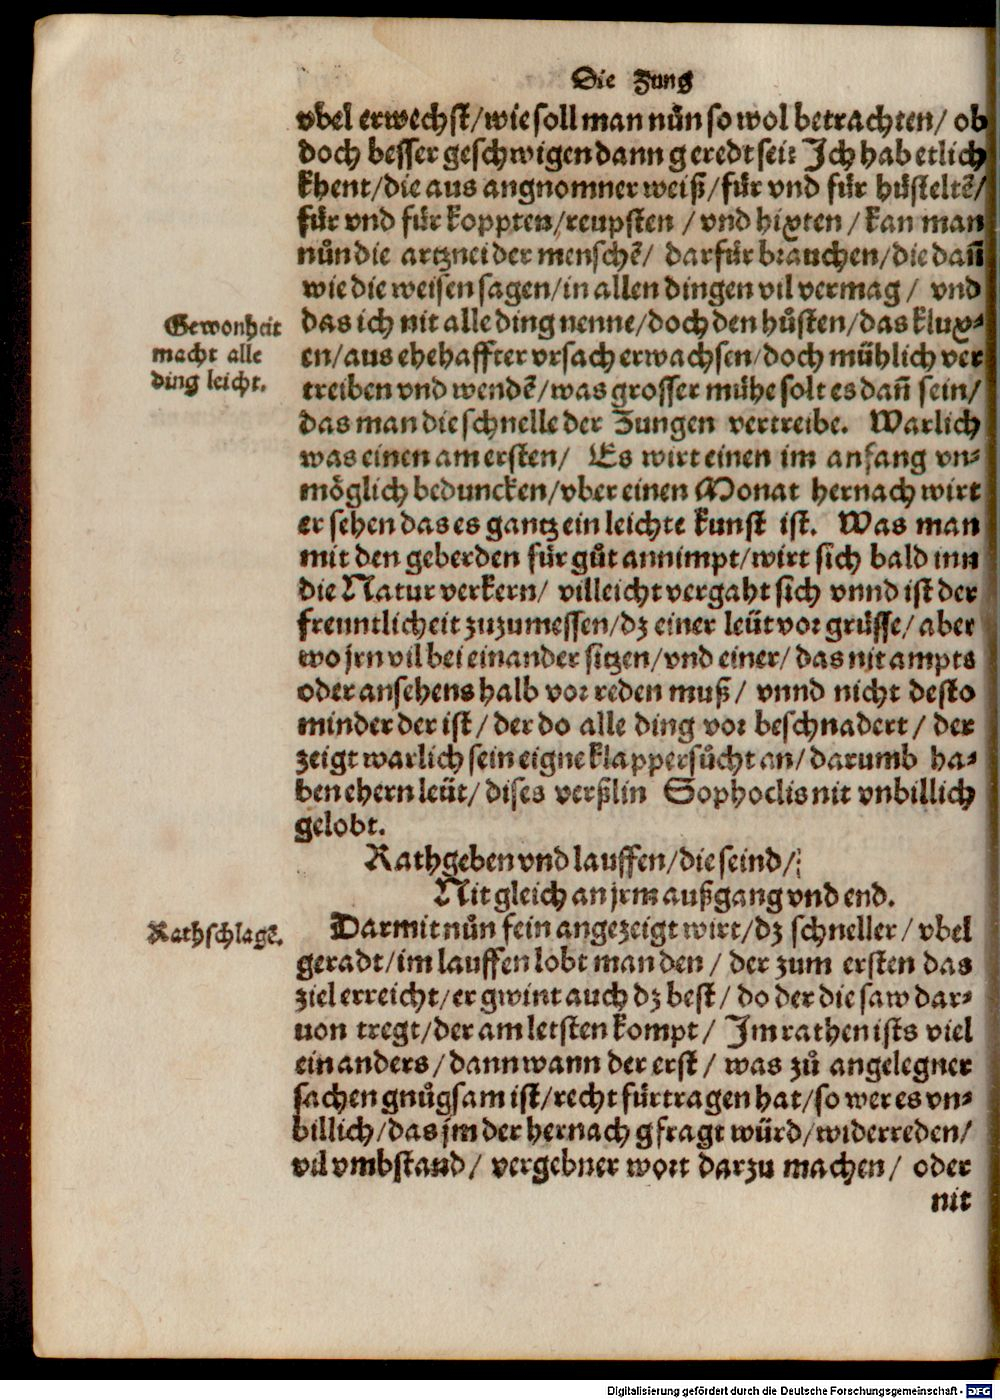 Die Zung
vbel erwechst/wie soll man nůn so wol betrachten/ ob
doch besser geschwigen dann geredt sei: Ich hab etlich
khent/die aus angnomner weiß/für vnd für hůsteltē/
für vnd für koppten/reupsten / vnd hixten / kan man
nůn die artznei der menschē/ darfür brauchen/die dañ
wie die weisen sagen/in allen dingen vil vermag / vnd
Gewonheit
macht alle
ding leicht.
das ich nit alle ding nenne/doch den hůsten/das klux⸗
en/aus ehehaffter vrsach erwachsen/doch mühlich ver
treiben vnd wendē/was grosser mühe solt es dañ sein/
das man die schnelle der Zungen vertreibe. Warlich
was einen am ersten/ Es wirt einen im anfang vn⸗
möglich beduncken/vber einen Monat hernach wirt
er sehen das es gantz ein leichte kunst ist. Was man
mit den geberden für gůt annimpt/wirt sich bald inn
die Natur verkern/ villeicht vergaht sich vnnd ist der
freuntlicheit zuzumessen/dz einer leüt vor grüsse/ aber
wo jrn vil bei einander sitzen/vnd einer/ das nit ampts
oder ansehens halb vor reden muß/ vnnd nicht desto
minder der ist/ der do alle ding vor beschnadert / der
zeigt warlich sein eigne klappersůcht an/ darumb ha⸗
ben ehern leüt/ dises verßlin Sophoclis nit vnbillich
gelobt.
Rathgeben vnd lauffen/die seind/
Nit gleich an jrm außgang vnd end.
Rathschlagē.
Darmit nůn fein angezeigt wirt/dz schneller / vbel
geradt/im lauffen lobt man den / der zum ersten das
ziel erreicht/er gwint auch dz best/ do der die saw dar⸗
uon tregt/der am letsten kompt/ Im rathen ists viel
ein anders/dann wann der erst/ was zů angelegner
sachen gnůgsam ist/recht fürtragen hat/so wer es vn⸗
billich/das jm der hernach gfragt würd/widerreden/
vil vmbstand/ vergebner wort darzu machen/ oder
nit
Digitalisierung gefördert durch die Deutsche Forschungsgemeinschaft - DFG